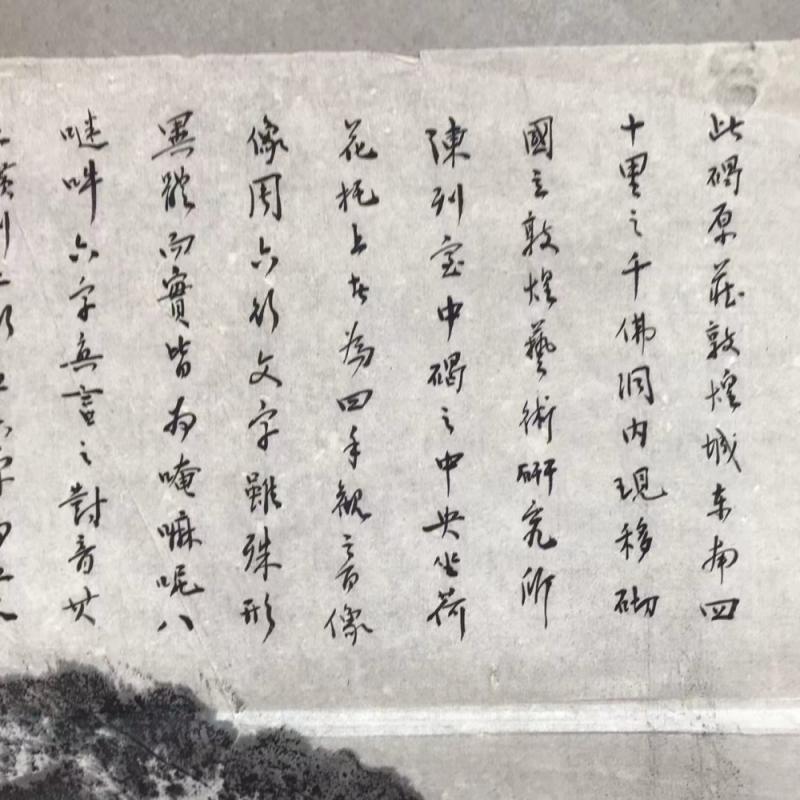 此碣原藏敦煌城东南四
十里之千佛洞内現移砌
國立敦煌藝術研究所
陳列室中碣之中央坐荷
花托上者為四手觀音像
像周六行文字雖殊形
異體而實皆为唵嘛呢八
𡁠吽六字真言之對音其